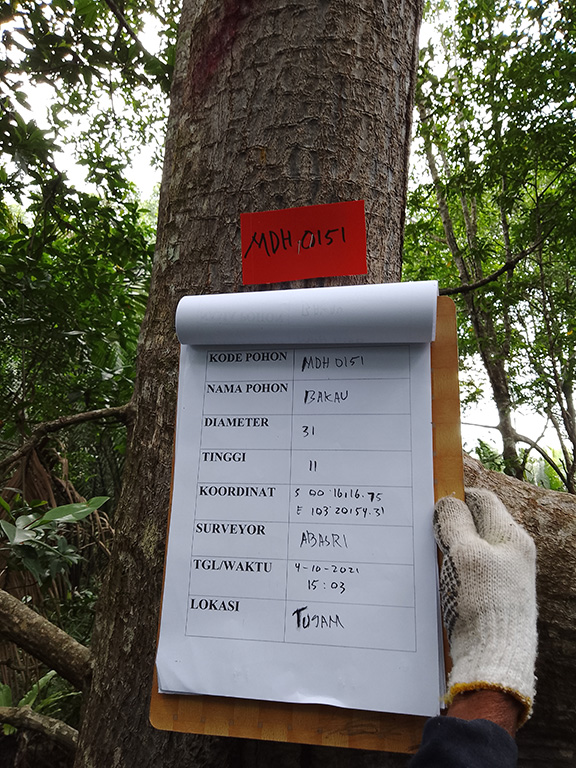 MDH 0151
KODE POHON MDH 0151
NAMA POHON BAKAU
DIAMETER 31
TINGGI 11
KOORDINAT S 00 16 16.75
E 103 20 154.31
SURVEYOR ABASRI
TGL/WAKTU 4-10-2021
15:03
LOKASI